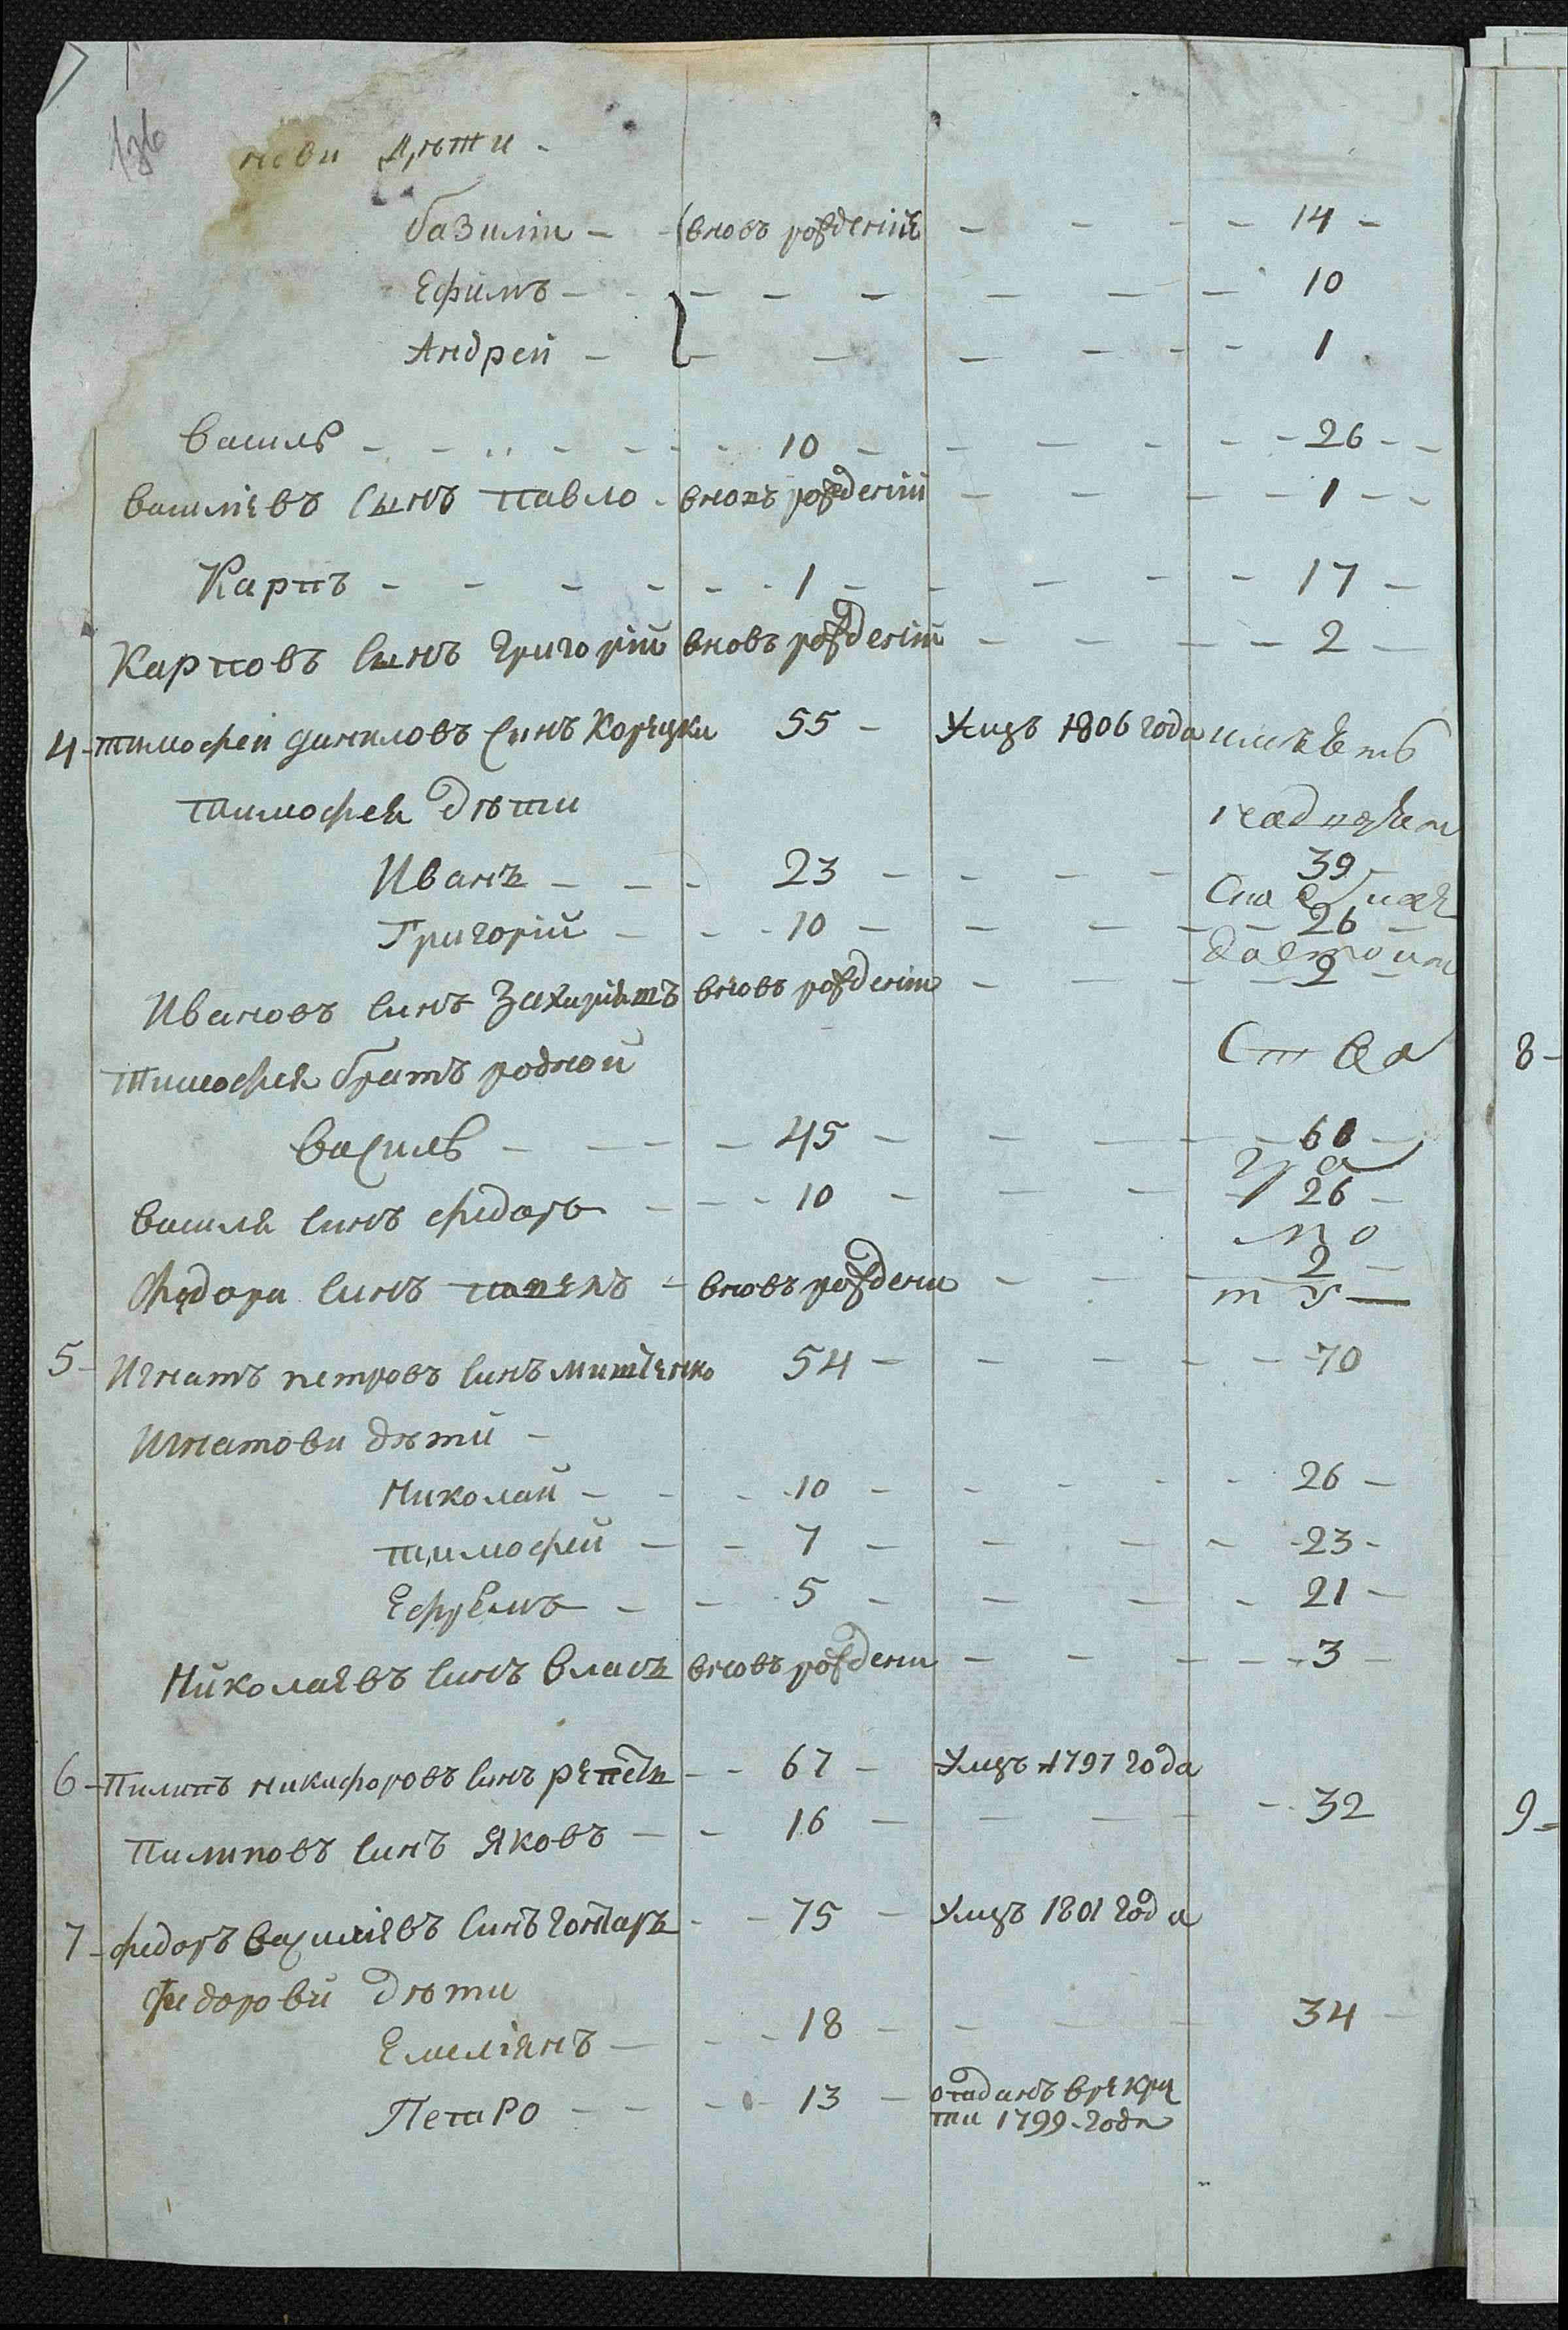 136
нови дѣти -
базилій - - вновь рожденій - - - - 14 -
Ефимъ - - - - - - - - 10
Андрей - - - - - - - 1
василь - - - - - 10 - - - - - 26 - -
василіевъ сынъ павло - вновь рожденій - - - - 1 - -
Карпъ - - - - - - 1 - - - - - 17 -
Карповъ сынъ григорій вновь рожденій - - - - 2 -
4 - тимофей даниловъ синъ Корецки 55 - Умръ 1806 года
имѣетъ
тимофея дѣти
надлежат
Иванъ - - - 23 - - - - 39
Григорій - - - 10 - - - - - 26 -
достоин
Ивановъ синъ Захаріятъ вновь рожденій - - - - 2 -
ства
тимофея братъ родной
василь - - - - 45 - - - - - 60 -
гра
василя синъ федоръ - - - 10 - - - - 26 -
мо
Федора синъ - вновь рождени - - - - 2 -
ту
5 - Игнатъ петровъ синъ митченко 54 - - - - - 70
Игнатови дѣти -
Николай - - - 10 - - - - - 26 -
тимофей - - 7 - - - - - 23 -
Ефремъ - - 5 - - - - 21 -
Николаевъ синъ власъ вновь рождени - - - - - 3 -
6 - Пилипъ никифоровъ синъ репетъ - - 67 - Умръ 1797 года
Пилиповъ синъ Яковъ - - 16 - - - - - 32
7 - федоръ василіевъ синъ гонтаръ - - 75 - Умръ 1801 года
Федорови дѣти
Емеліянъ - - - 18 - - - - 34 -
Петро - - - - 13 - отданъ врекру
ти 1799 - года
8 -
9 -